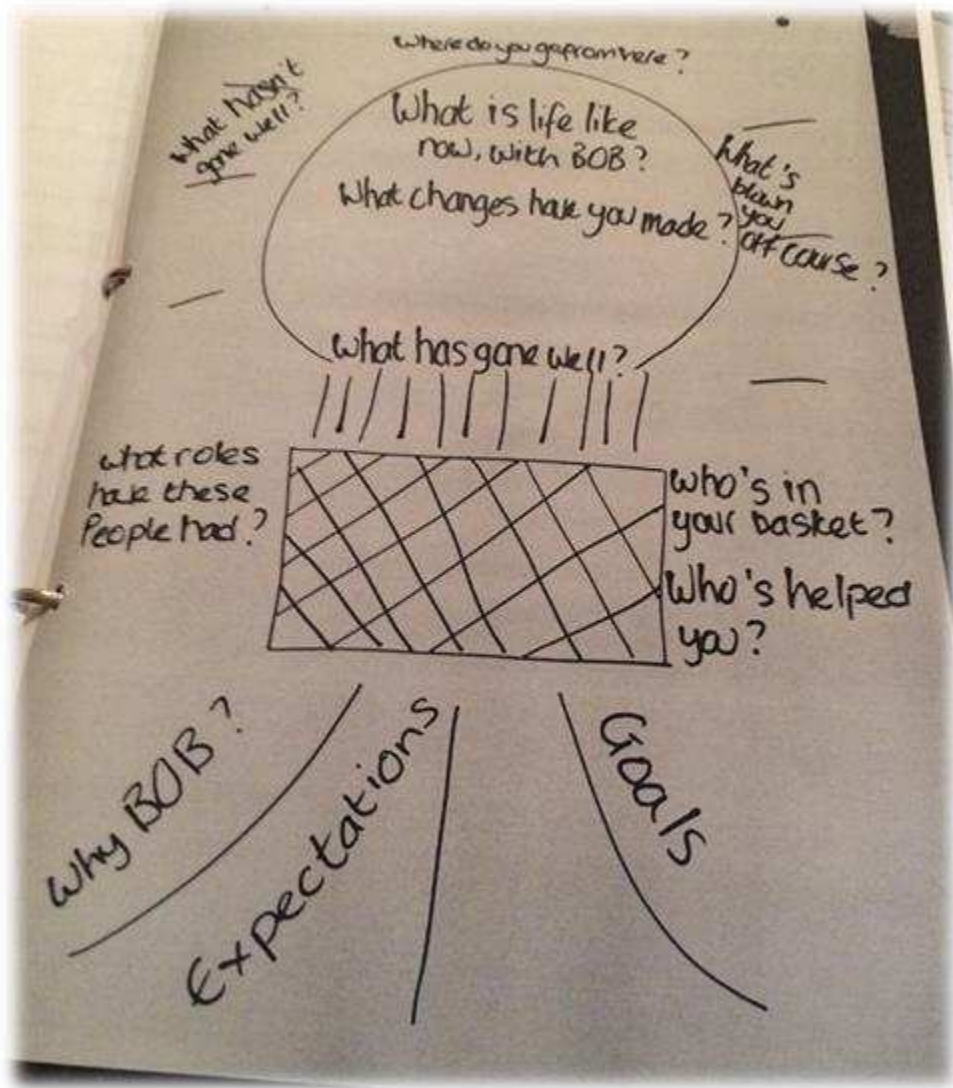 Where do you go from here?
What hasn't
gone well?
What is life like
now, with BOB?
What changes have you made?
What's
blown
you
off course?
What has gone well?
what roles
have these
People had?
Who's in
your basket?
Who's helped
you?
Why BOB?
Expectations
Goals